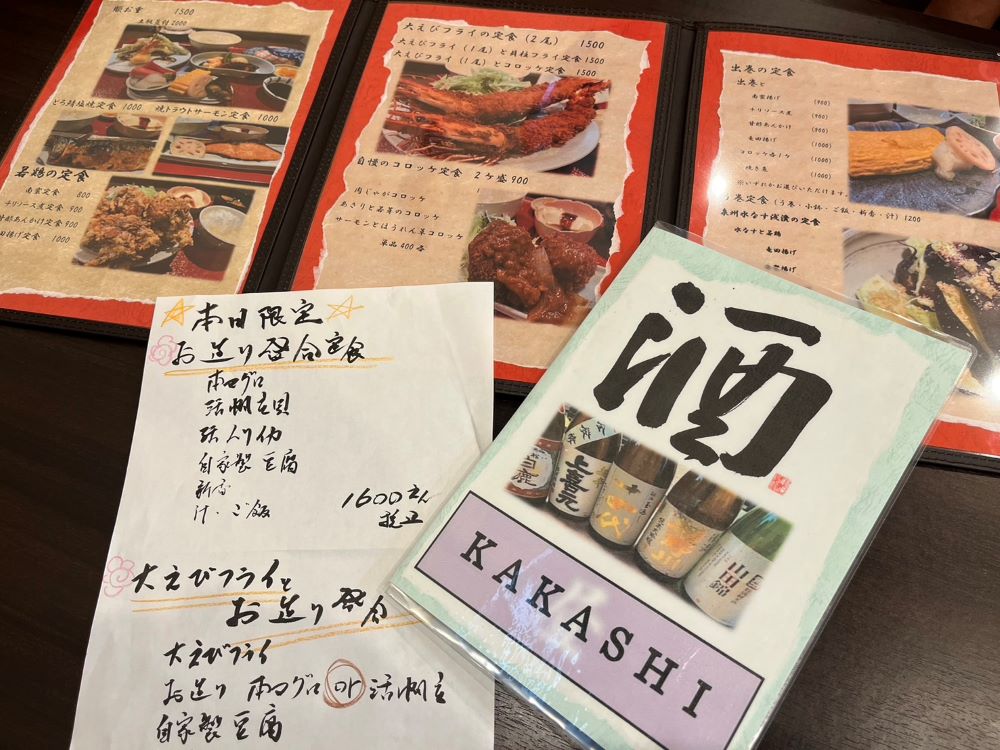 順お重 1500
とろ鯖塩焼定食 1000
焼トラウトサーモン定食 1000
若鶏の定食
南蛮定食 800
チリソース煮定食 900
甘酢あんかけ定食 900
田揚げ定食 1000
大えびフライの定食(2尾) 1500
大えびフライ(1尾)と貝柱フライ定食 1500
大えびフライ(1尾)とコロッケ定食 1500
自慢のコロッケ定食 2ケ盛 900
肉じゃがコロッケ
あさりと若芽のコロッケ
サーモンとほうれん草コロッケ
単品 400各
出巻の定食
出巻と
南蛮揚げ (900)
チリソース煮 (900)
甘酢あんかけ (900)
竜田揚げ (1000)
コロッケ各1ケ (1000)
焼き魚 (1000)
※いずれかお選びいただけます。
う巻定食(う巻・小鉢・ご飯・新香・汁) 1200
泉州水なす浅漬の定食
水なすと若鶏
竜田揚げ
南蛮揚げ
本日限定
お造り盛合定食
本マグロ
活帆立貝
自家製豆腐
新香
汁・ご飯
1600えん
税込
大えびフライと
お造り盛合
大えびフライ
お造り 本マグロ or 活帆立
自家製豆腐
酒
白鹿
上喜元
十四代
山田錦
KAKASHI